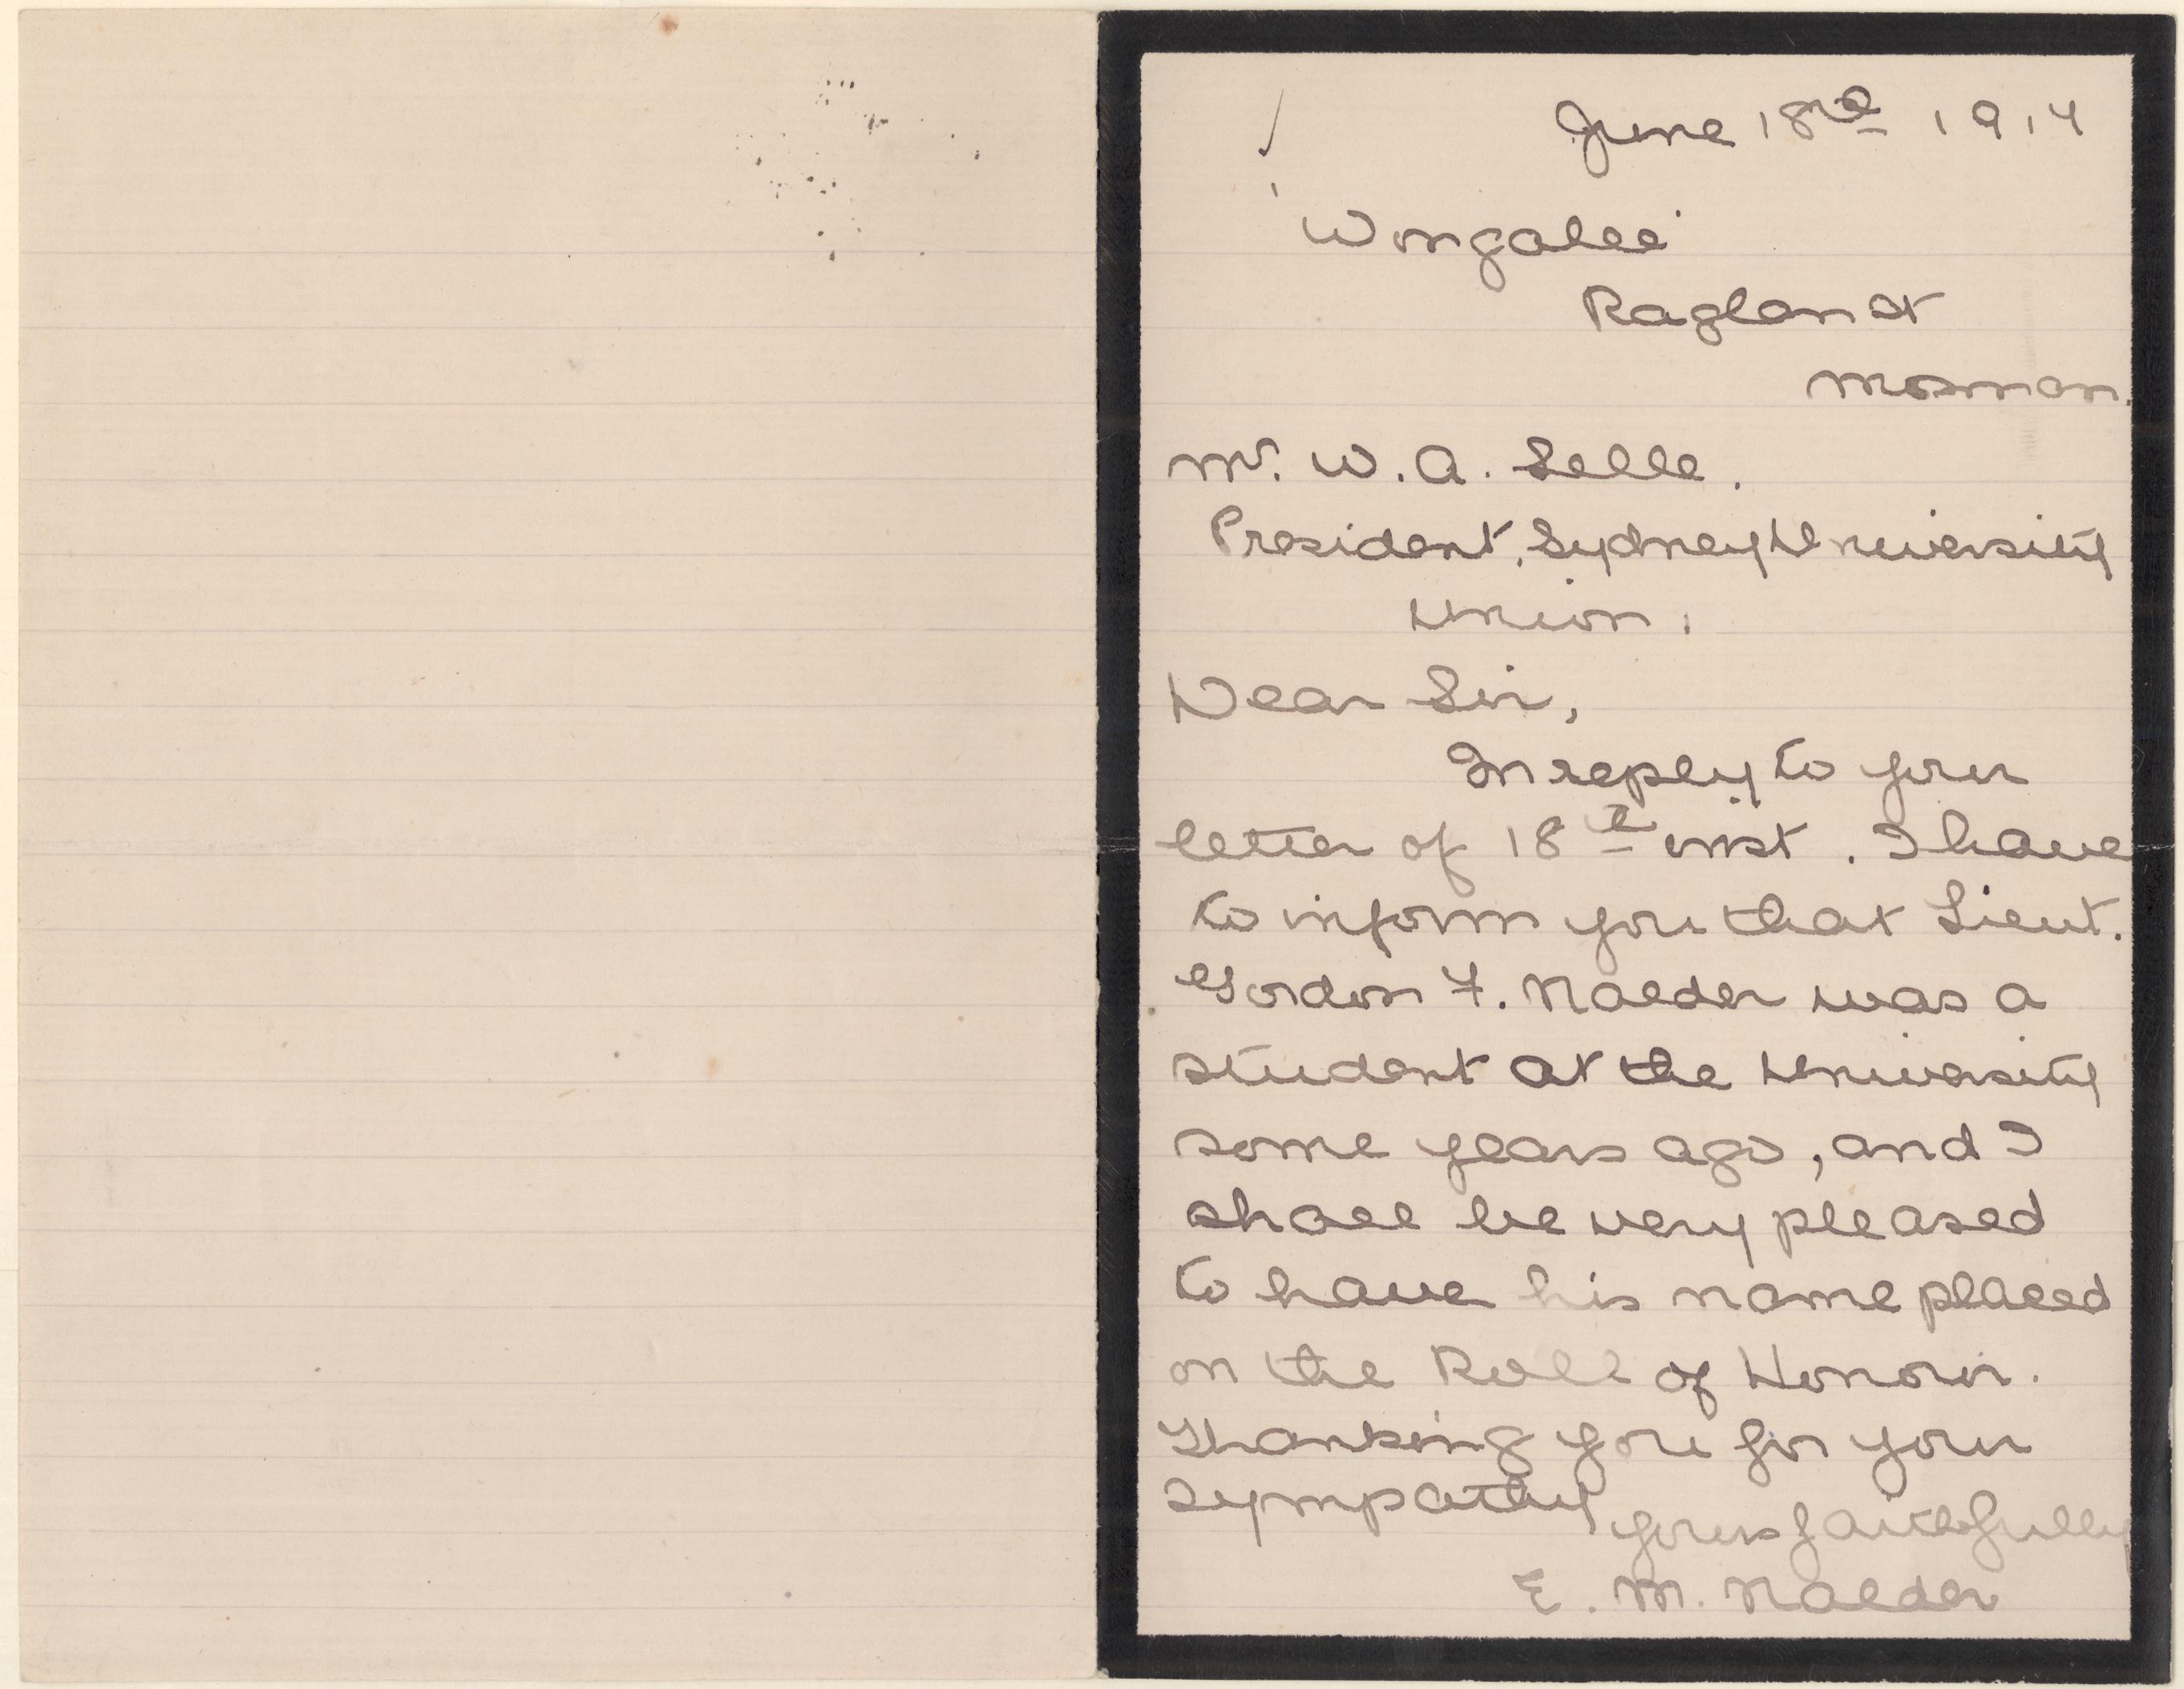 June 18th 1914
'Wongalee'
Raglan st
Mosman.
Mr. W. A. Selle.
President, Sydney University
Union.
Dear Sir,
In reply to your
letter of 18th inst. I have
to inform you that Lieut.
Gordon F. Naeder was a
student at the University
some years ago, and I
shall be very pleased
to have his name placed
on the Roll of Honour.
Thanking you for your
sympathy
yours faithfully
E. M. Naeder